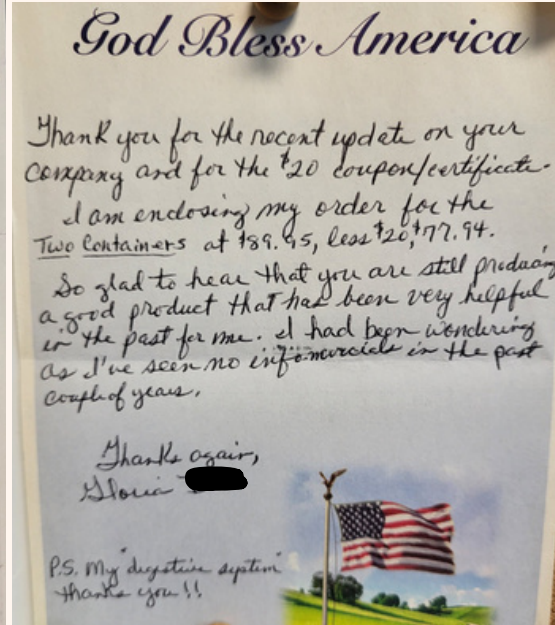 God Bless America
Thank you for the recent update on your
company and for the $20 coupon/certificate.
I am enclosing my order for the
Two Containers at $89.95, less $20, $77.94.
So glad to hear that you are still producing
a good product that has been very helpful
in the past for me. I had been wondering
as I've seen no infomercials in the past
couple of years.
Thanks again,
Gloria
P.S. My "digestive system"
thanks you!!